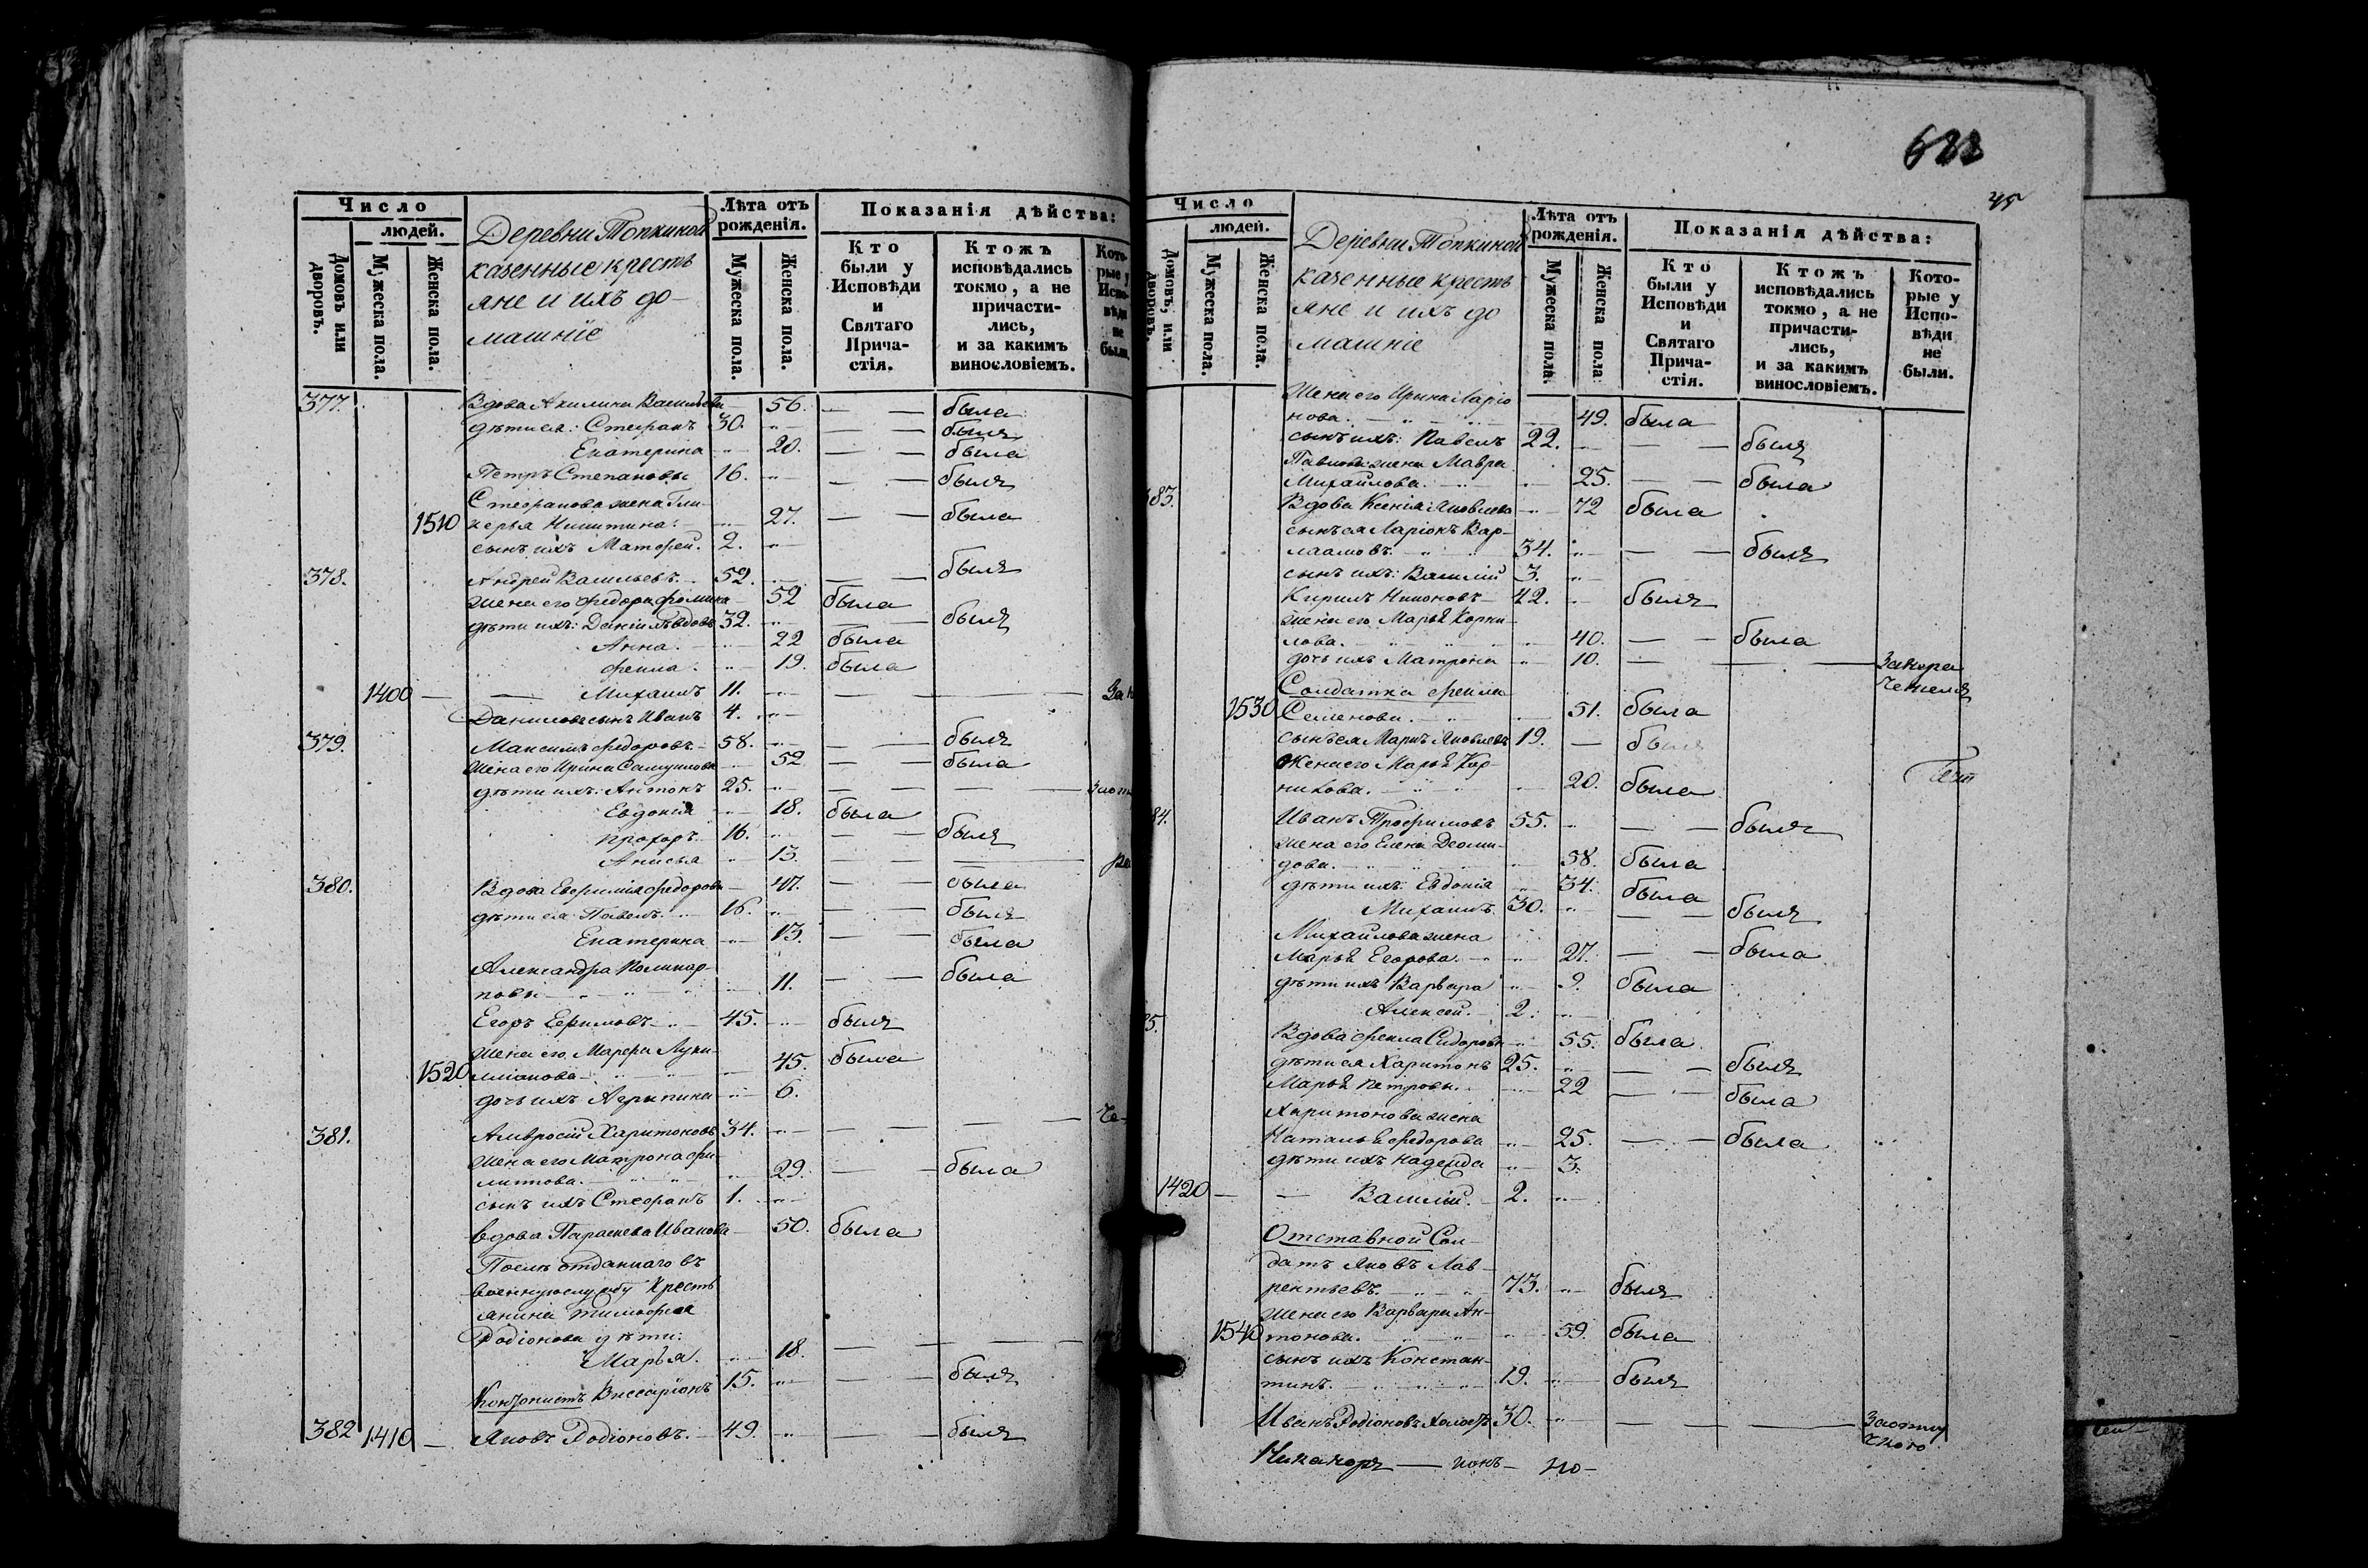 Число
людей.
Домовъ или дворовъ.
Мужеска пола.
Женска пола.
Деревни Топкиной
казенные кресть
яне и ихъ до-
машніе
Лѣта отъ рожденія.
Мужеска пола.
Женска пола.
Показанія дѣйства:
Кто были у Исповѣди и Святаго Прича-стія.
Ктожъ исповѣдались токмо, а не причасти-лись, и за какимъ винословіемъ.
Кото-рые у Испо-вѣди не были.
377. Вдова Акилина Васильева — 56. — — была
дѣти ея: Стефанъ 30. — — былъ
Екатерина — 20. — — была
Петръ Степановы 16. — — былъ
Стефанова жена Гли-
1510 керья Никитина. — 27. — — была
сынъ ихъ Матфей. 2.
378. Андрей Васильевъ. 52. — — былъ
жена его Федора Фомина — 52 была
дѣти ихъ: Даніилъ вдовъ 32. — — былъ
Анна. — 22 была
Фекла. — 19. была
1400 — — Михаилъ 11. — — —
Данилова сынъ Иванъ 4.
379. Максимъ Федоровъ. 58. — — былъ
жена его Ирина Самуилова — 52 — — была
дѣти ихъ: Антонъ 25. — — —
Евдокія — 18. была
Прохоръ 16. — — былъ
Анисья — 13. — — —
380. Вдова Евфимія Федорова — 47. — — была
дѣти ея: Павелъ. 16. — — былъ
Екатерина — 13. — — была
Александра Поликар-
повы — 11. — — была
Егоръ Ефимовъ 45. былъ
жена его Марфа Луки-
1520 мианова — 45. была
дочь ихъ Агрипина — 6.
381. Амвросій Харитоновъ 34. — — —
жена его Матрона Фи-
липова. — 29. — — была
сынъ ихъ Стефанъ 1.
вдова Параскева Иванова — 50. была
Послѣ отданнаго въ
военную службу кресть
янина Тимофея
Родіонова дѣти:
Марья. — 18. — — —
Кантонистъ Виссаріонъ 15. — — былъ
382 1410 — Яковъ Родіоновъ. 49. — — былъ
622
45
Число
людей.
Домовъ, или дворовъ.
Мужеска пола.
Женска пола.
Деревни Топкиной
казенные кресть
яне и ихъ до
машніе
Лѣта отъ рожденія.
Мужеска пола.
Женска пола.
Показанія дѣйства:
Кто были у Исповѣди и Святаго Прича-стія.
Ктожъ исповѣдались токмо, а не причасти-лись, и за какимъ винословіемъ.
Кото-рые у Испо-вѣди не были.
жена его Ирина Ларіо
нова. — 49. была
сынъ ихъ: Павелъ 22. — — былъ
Павлова жена Мавра
Михайлова. — 25. — — была
83. Вдова Ксенія Яковлева — 72 была
сынъ ея Ларіонъ Вар-
лаамовъ. 34. — — былъ
сынъ ихъ: Василій 3.
Кирилъ Никоновъ 42. былъ
жена его Марья Корни-
лова. — 40. — — была
дочь ихъ Матрона — 10. — — —
Солдатка Фекла
1530 Семенова. — 51. была
сынъ ея Маркъ Яковлевъ 19. — былъ
Жена его Марья Кор-
нилова. — 20. была
84. Иванъ Трофимовъ 55. — — былъ
жена его Елена Деоми-
дова. — 58. была
дѣти ихъ: Евдокія — 34. была
Михаилъ. 30. — — былъ
Михайлова жена
Марья Егорова. — 27. — — была
дѣти ихъ Варвара — 9. была
Алексей. 2.
85. Вдова Фекла Сидорова — 55. была
дѣти ея Харитонъ 25. — — былъ
Марья Петровы. — 22 — — была
Харитонова жена
Наталья Федорова — 25. — — была
дѣти ихъ Надежда — 3.
1420 — — Василій. 2.
Отставной Сол-
датъ Яковъ Лав-
рентьевъ. 73. былъ
жена его Варвара Ан-
1540 тонова. — 59. была
сынъ ихъ Констан-
тинъ. 19. былъ
Иванъ Родіоновъ холостъ 30. — — —